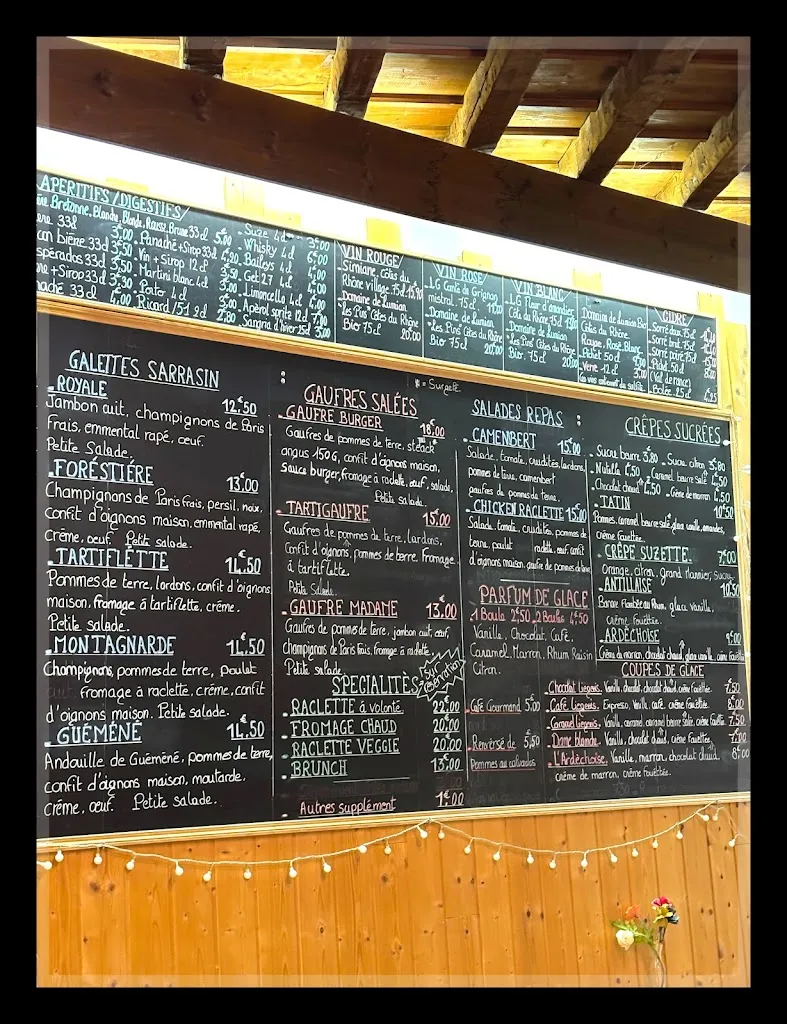 APERITIFS/DIGESTIFS
Bretonne, Blanche, Blonde, Rousse, Brune 33cl 5,00
33cl 3,00
bière 33cl 3,50 Panaché+Sirop 33cl 4,20
33cl 3,50 Vin + Sirop 12cl
+Sirop 33cl Martini blanc 4cl 3,50
33cl 4,00 Porto 4cl 3,00
Ricard/51 2cl 2,80
Suze 4cl 3,00
Whisky 4cl 6,00
Baileys 4cl 4,00
Get 27 4cl 4,00
Limoncello 4cl 4,00
Apérol spritz 12cl 7,00
Sangria d'hiver 25cl 3,00
VIN ROUGE
Simiane, côtes du
Rhône village 75cl
Domaine de Lumian
"Les Pins" Côtes du Rhône
Bio 75cl 20,00
VIN ROSE
LG Comté de Grignan
mistral 75cl
Domaine de Lumian
"Les Pins" Côtes du Rhône
Bio 75cl 20,00
VIN BLANC
LG Fleur d'amandier
Côte du Rhône 75cl
Domaine de Lumian
"Les Pins" Côtes du Rhône
Bio 75cl 20,00
Domaine de Lumian Bio
Côtes du Rhône
Rouge, Rosé, Blanc
Pichet 50cl
Verre 12cl 3,00
CIDRE
Sorré doux 75cl
Sorré brut 75cl
Sorré poiré 75cl
Pichet 50cl 8,00
(Val de rance)
Bolée 25cl 4,25
* = Surgelé
GALETTES SARRASIN
.ROYALE 12€50
Jambon cuit, champignons de Paris
frais, emmental rapé, œuf.
Petite Salade.
.FORÉSTIÉRE 13€00
Champignans de Paris frais, persil, noix,
confit d'oignons maison, emmental rapé,
crême, œuf. Petite salade.
.TARTIFLETTE 14€50
Pommes de terre, lardons, confit d'oignons
maison, fromage á tartiflette, crême.
Petite salade.
.MONTAGNARDE 14€50
Champignons, pommes de terre, poulet
fromage à raclette, crême, confit
d'oignons maison. Petite salade.
.GUÉMÉNÉ 14€50
Andouille de Guéméné, pommes de terre,
confit d'oignons maison, moutarde,
crême, œuf. Petite salade.
GAUFRES SALÉES
.GAUFRE BURGER 18€00
Gaufres de pommes de terre, steack
angus 150g, confit d'oignons maison,
sauce burger, fromage à raclette, œuf, salade,
Petite salade.
.TARTIGAUFRE 15€00
Gaufres de pommes de terre, lardons,
Confit d'oignons, pommes de terre, Fromage
á tartiflette.
Petite Salade.
.GAUFRE MADAME 13€00
Gaufres de pommes de terre, jambon cuit, œuf,
champignons de Paris frais, fromage à raclette.
Petite salade.
SPÉCIALITÉS
sur réservation
.RACLETTE á volonté. 22€00
.FROMAGE CHAUD 20€00
.RACLETTE VEGGIE 20€00
.BRUNCH 13€00
.Autres supplément 1€00
SALADES REPAS
.CAMENBERT 15€00
Salade, tomate, crudités, lardons,
pommes de terre, camenbert
gaufres de pommes de terre.
.CHICKEN RACLETTE 15€00
Salade, tomate, crudités, pommes de
terre, poulet raclette, œuf, confit
d'oignons maison, gaufre de pommes de terre
PARFUM DE GLACE
.1 Boule 2€50 .2 Boules 4€50
Vanille, Chocolat, Café,
Caramel, Marron, Rhum Raisin
Citron.
.Café Gourmand 5€00
.Renversé de 5,50
Pommes au calvados
CRÊPES SUCRÉES
.Sucre beurre 3€80 .Sucre citron 3€80
.Nutella 4€50 .Caramel beurre salé 4€50
.Chocolat chaud 4€50 .Crême de marron 4€50
.TATIN 10€50
Pommes, caramel beurre salé, glace vanille, amandes,
crême fouettée.
.CRÊPE SUZETTE. 7€00
Orange, citron, Grand Marnier, sucre
.ANTILLAISE 10€50
Banane flambée au Rhum, glace vanille,
crême fouettée.
.ARDÉCHOISE 9€00
Crême de marron, chocolat chaud, glace vanille, crême fouettée
COUPES DE GLACE
.Chocolat Liegeois. Vanille, chocolat, chocolat chaud, crême fouettée. 7€50
.Café Liegeois. Expresso, Vanille, café, crême fouettée. 8€00
.Caramel Liegeois. Vanille, caramel, caramel beurre salé, crême fouettée 7€50
.Dame blanche. Vanille, chocolat chaud, crême fouettée. 7€00
.L'Ardéchoise. Vanille, marron, chocolat chaud, 8€00
crême de marron, crême fouettée.